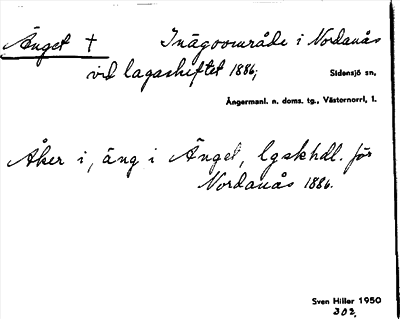 Änget † Inägoområde i Nordanås
vid lagaskiftet 1886;
Sidensjö sn,
Ångermanl. n. doms. tg., Västernorrl, l.
Åker i, äng i Änget, lgskhdl. för
Nordanås 1886.
Sven Hiller 1950
302.